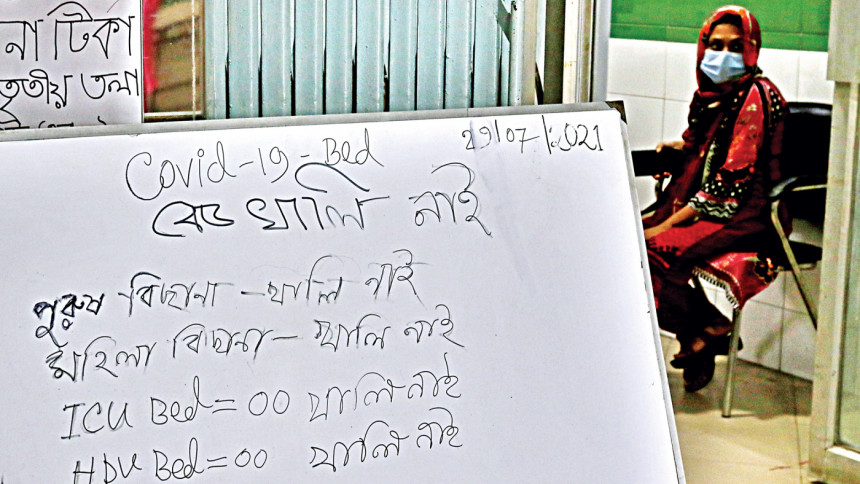 না টিকা
তৃতীয় তলা
Covid-19-Bed
29/07/2021
বেড খালি নাই
পুরুষ বিছানা - খালি নাই
মহিলা বিছানা - খালি নাই
ICU Bed = 00 খালি নাই
HDU Bed = 00 খালি নাই